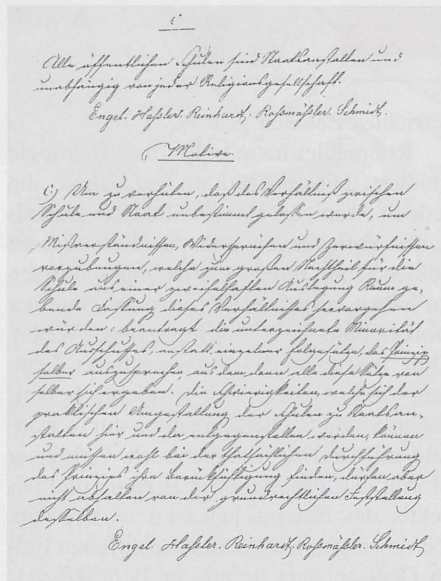 c.
Alle öffentlichen Schulen sind Staatsanstalten und
unabhängig von jeder Religionsgesellschaft.
Engel. Haßler. Reinhardt. Roßmäßler. Schmidt.
Motive.
c.) Um zu verhüten, daß das Verhältniß zwischen
Schule und Staat unbestimmt gelassen werde, um
Mißverständnissen, Widersprüchen und Zerwürfnissen
vorzubeugen, welche zum großen Nachtheil für die
Schule aus einer zweifelhaften Auslegung Raum ge-
bende Fassung dieses Verhältnisses hervorgehen
würden: beantragt die unterzeichnete Minorität
des Ausschusses, anstatt einzelner Folgesätze, das Prinzip
selber auszusprechen aus dem dann alle diese Sätze von
selber sich ergeben. Die Schwierigkeiten, welche sich der
praktischen Umgestaltung der Schulen zu Staatsan-
stalten hier und da entgegenstellen, werden, können
und müssen wohl bei der thatsächlichen Durchführung
des Prinzips ihre Berücksichtigung finden, dürfen aber
nicht abhalten von der grundrechtlichen Feststellung
desselben.
Engel Haßler. Reinhardt. Roßmäßler. Schmidt